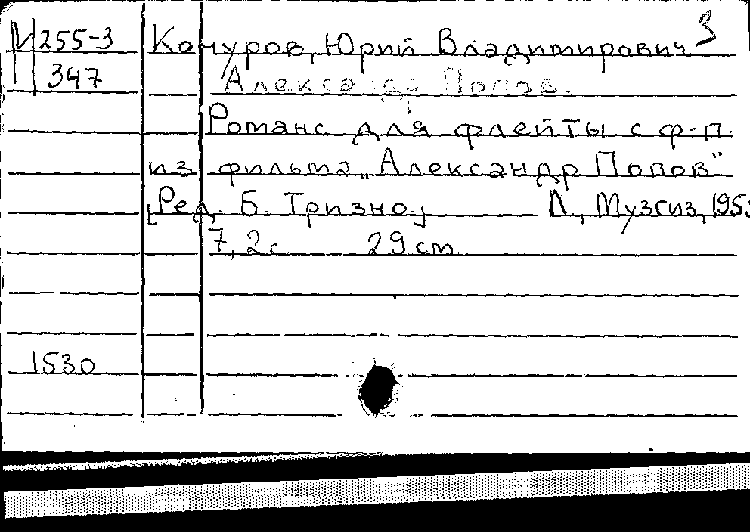 М 255-3 Кочуров, Юрий Владимирович 3
347 Александр Попов.
Романс для флейты с ф-п.
из фильма „Александр Попов"
[Ред. Б. Тризно] Л., Музгиз, 195
7, 2 с 29 cm
1530